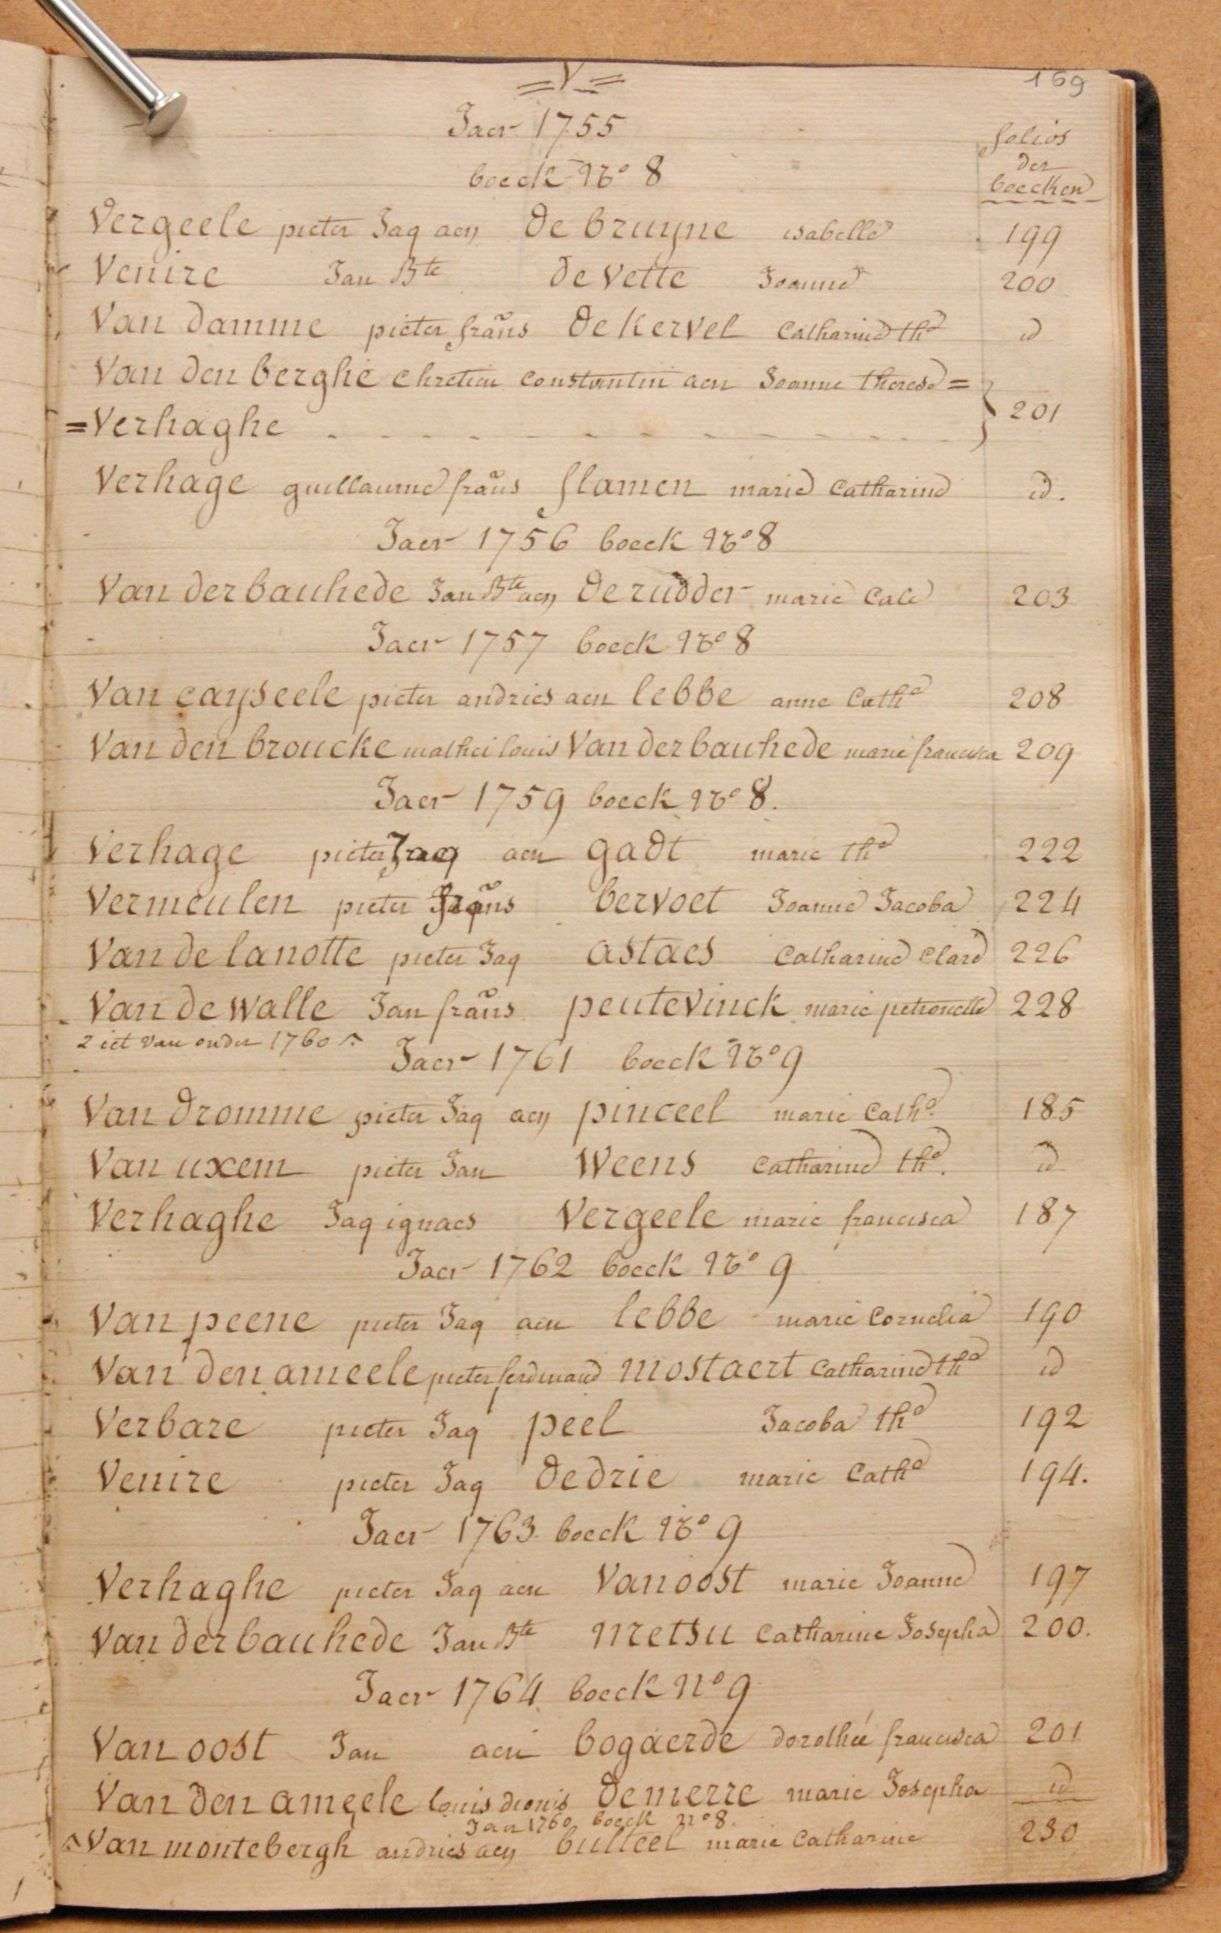 =V=
169
Jaer 1755
folios
der
boecken
boeck No 8
Vergeele pieter Jaq aen De bruyne isabelle 199
Venire Jan Bte de vette Joanne 200
Van damme pieter frans De kervel Catharine the id
Van den berghe Chretien Constantin aen Joanne therese =
= Verhaghe - - - - - - - - - - - - } 201
Verhage guillaume frans flamen marie Catharine id.
Jaer 1756 boeck No 8
Van der bauhede Jan Bte aen De rudder marie Cale 203
Jaer 1757 boeck No 8
Van cayseele pieter andries aen lebbe anne Cathe 208
Van den broucke mathei louis Van der bauhede marie francisca 209
Jaer 1759 boeck No 8.
Verhage pieter Jaq aen gadt marie the 222
Vermeulen pieter frans bervoet Joanne Jacoba 224
Van de lanotte pieter Jaq astaes Catharine Clare 226
Van de Walle Jan frans peutevinck marie petronelle 228
2 iet van onder 1760
Jaer 1761 boeck No 9
Van Dromme pieter Jaq aen pinceel marie Cathe 185
Van uxem pieter Jan Weens Catharine the. id
Verhaghe Jaq ignaes Vergeele marie francisca 187
Jaer 1762 boeck No 9
Van peene pieter Jaq aen lebbe marie Cornelia 190
Van den ameele pieter ferdinand mostaert Catharine the id
Verbare pieter Jaq peel Jacoba the 192
Venire pieter Jaq Dedrie marie Cathe 194.
Jaer 1763 boeck No 9
Verhaghe pieter Jaq aen Van oost marie Joanne 197
Van der bauhede Jan Bte Metsu Catharine Josepha 200.
Jaer 1764 boeck No 9
Van oost Jan aen bogaerde dorothée francisca 201
Van den ameele louis dionis Demerre marie Josepha id
Jaer 1760 boeck no 8.
Van montebergh andries aen bulteel marie Catharine 230